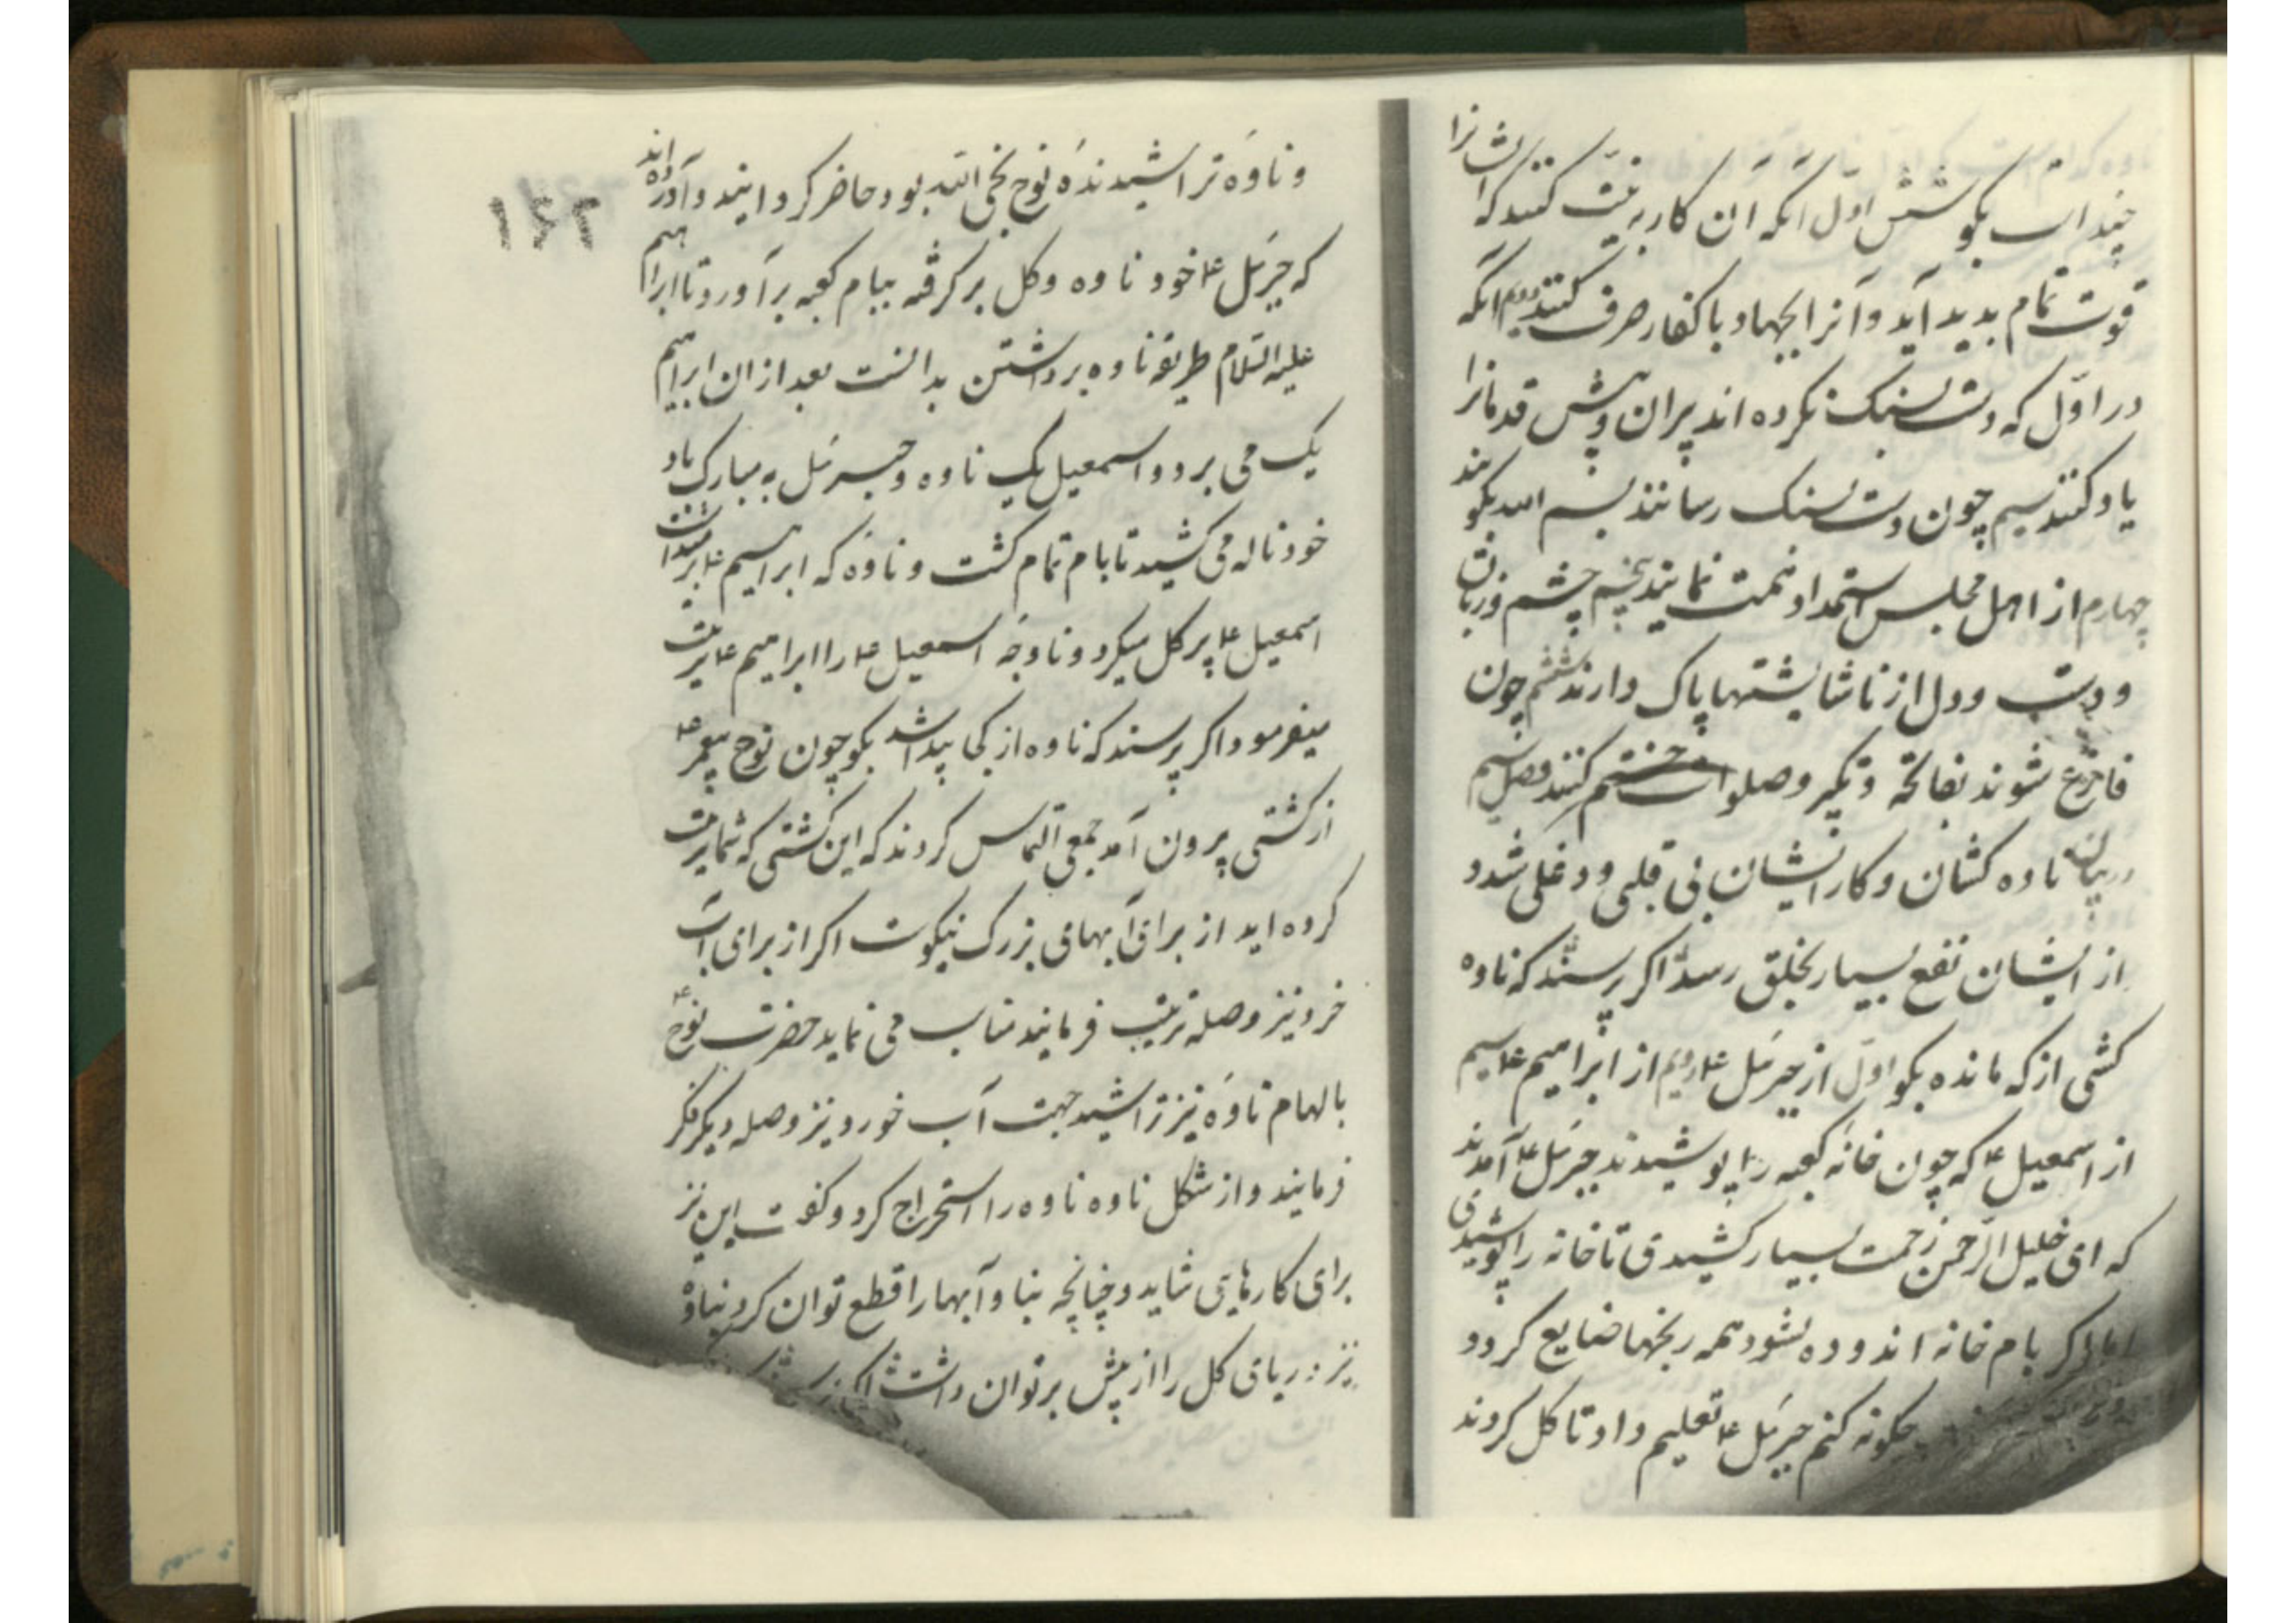 چند است بگو شش اول آنکه آن کار به نیت کنند که ایشانرا
قوت تمام بدید آید و آنرا بجهاد با کفار صرف کنند دویم آنکه
در اول که دست بسنک نکرده اند پیران و پیش قدمانرا
یاد کنند سیم چون دست بسنک رسانند بسم الله بگویند
چهارم از اهل مجلس استمداد همت نمایند پنجم چشم و زبان
و دست و دل از ناشایستها پاک دارند ششم چون
فارغ شوند بفاتحه و تکبیر و صلوات ختم کنند فصل سیم
در بیان ناوه کشان و کار ایشان بی قلبی و دغلی شد و
از ایشان نفع بسیار بخلق رسد اگر پرسند که ناوه
کشی از که مانده بگو اول از جبرئیل ع دویم از ابراهیم ع سیم
از اسمعیل ع که چون خانه کعبه را پوشیدند جبرئیل ع آمدند
که ای خلیل الرحمن زحمت بسیار کشیدی تا خانه را پوشیدی
اما اگر بام خانه اندوده نشود همه رنجها ضایع گردد
چکونه کنم جبرئیل ع تعلیم داد تا کل کردند
۱۶۲
و ناوه تراشیده نوح نجی الله بود حاضر کردانیند و آورده اند
که جبرئیل ع خود ناوه و کل بر کرفته ببام کعبه برآورد تا ابراهیم
علیه السلام طریقه ناوه برداشتن بدانست بعد از ان ابراهیم
یک می برد و اسمعیل یک ناوه و جبرئیل به مبارک باد
خود ناله می کشید تا بام تمام کشت و ناوه که ابراهیم ع برمیداشت
اسمعیل ع پر کل میکرد و ناوه اسمعیل ع را ابراهیم ع ترتیب
میفرمود اکر پرسند که ناوه از کجا پیدا شد بکو چون نوح پیغمبر ع
از کشتی بیرون آمد جمعی التماس کردند که این کشتی که شما ترتیب
کرده اید از برای آبهای بزرک نیکوست اکر از برای آب
خرد نیز وصله ترتیب فرمایند مناسب می نماید حضرت نوح ع
بالهام ناوه نیز تراشید جهت آب خورد نیز وصله دیکر فکر
فرمایند و از شکل ناوه ناوه را استخراج کرد و کفت این نیز
برای کارهای شاید و چنانچه بناو آبها را قطع توان کرد بناوه
نیز دریای کل را از پیش بر توان داشت